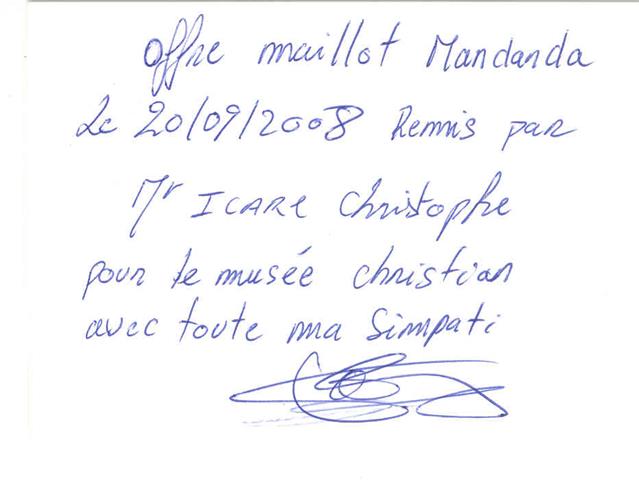 Offre maillot Mandanda
Le 20/09/2008 Remis par
Mr ICARE Christophe
pour le musée christian
avec toute ma Simpati